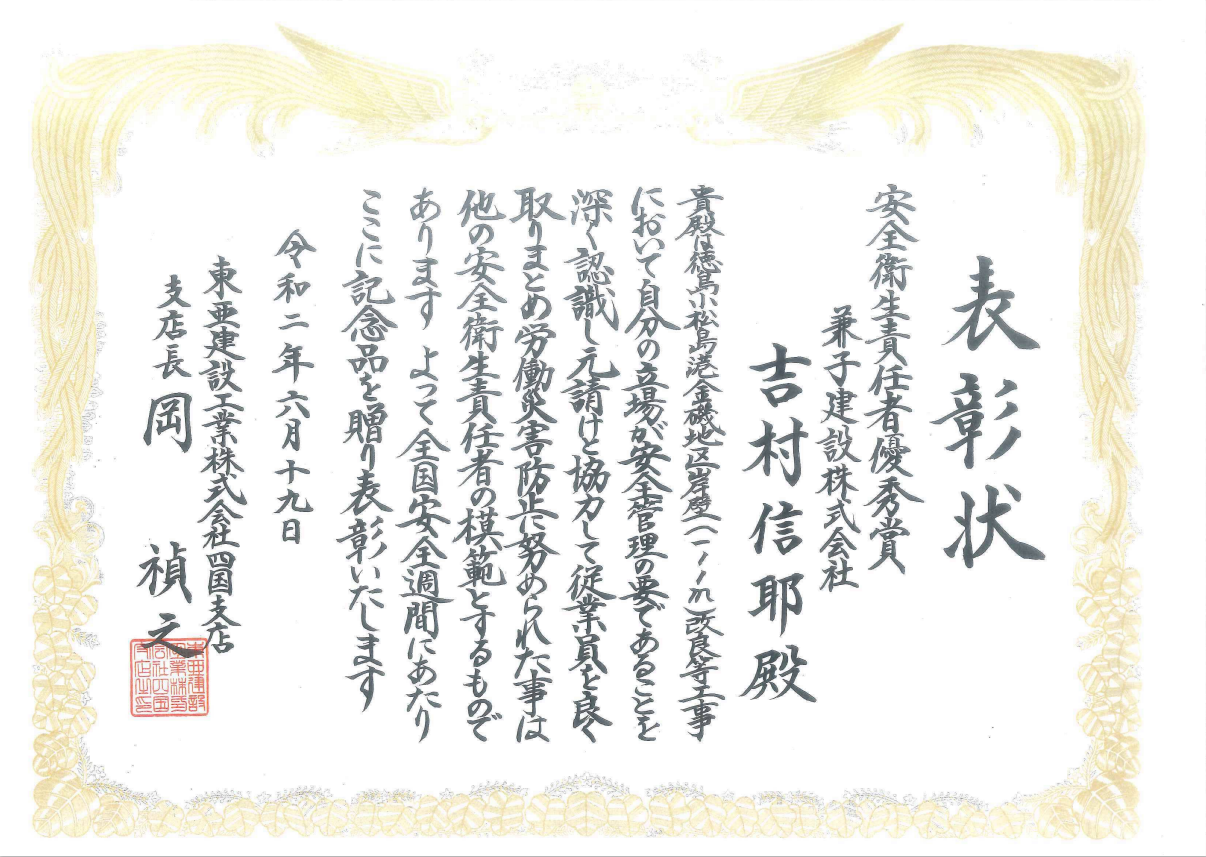 表彰状
安全衛生責任者優秀賞
兼子建設株式会社
吉村信耶殿
貴殿は徳島小松島港金磯地区岸壁(－11m)改良等工事
において自分の立場が安全管理の要であることを
深く認識し元請けと協力して従業員を良く
取りまとめ労働災害防止に努められた事は
他の安全衛生責任者の模範とするもので
あります よって全国安全週間にあたり
ここに記念品を贈り表彰いたします
令和二年六月十九日
東亜建設工業株式会社四国支店
支店長 岡 禎之
東亜建設
工業株式
会社四国
支店之印